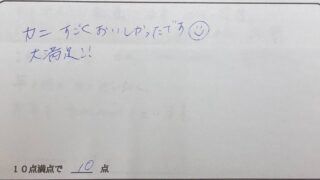 カニ すごく おいしかったです☺
大満足!!
10点満点で 10 点